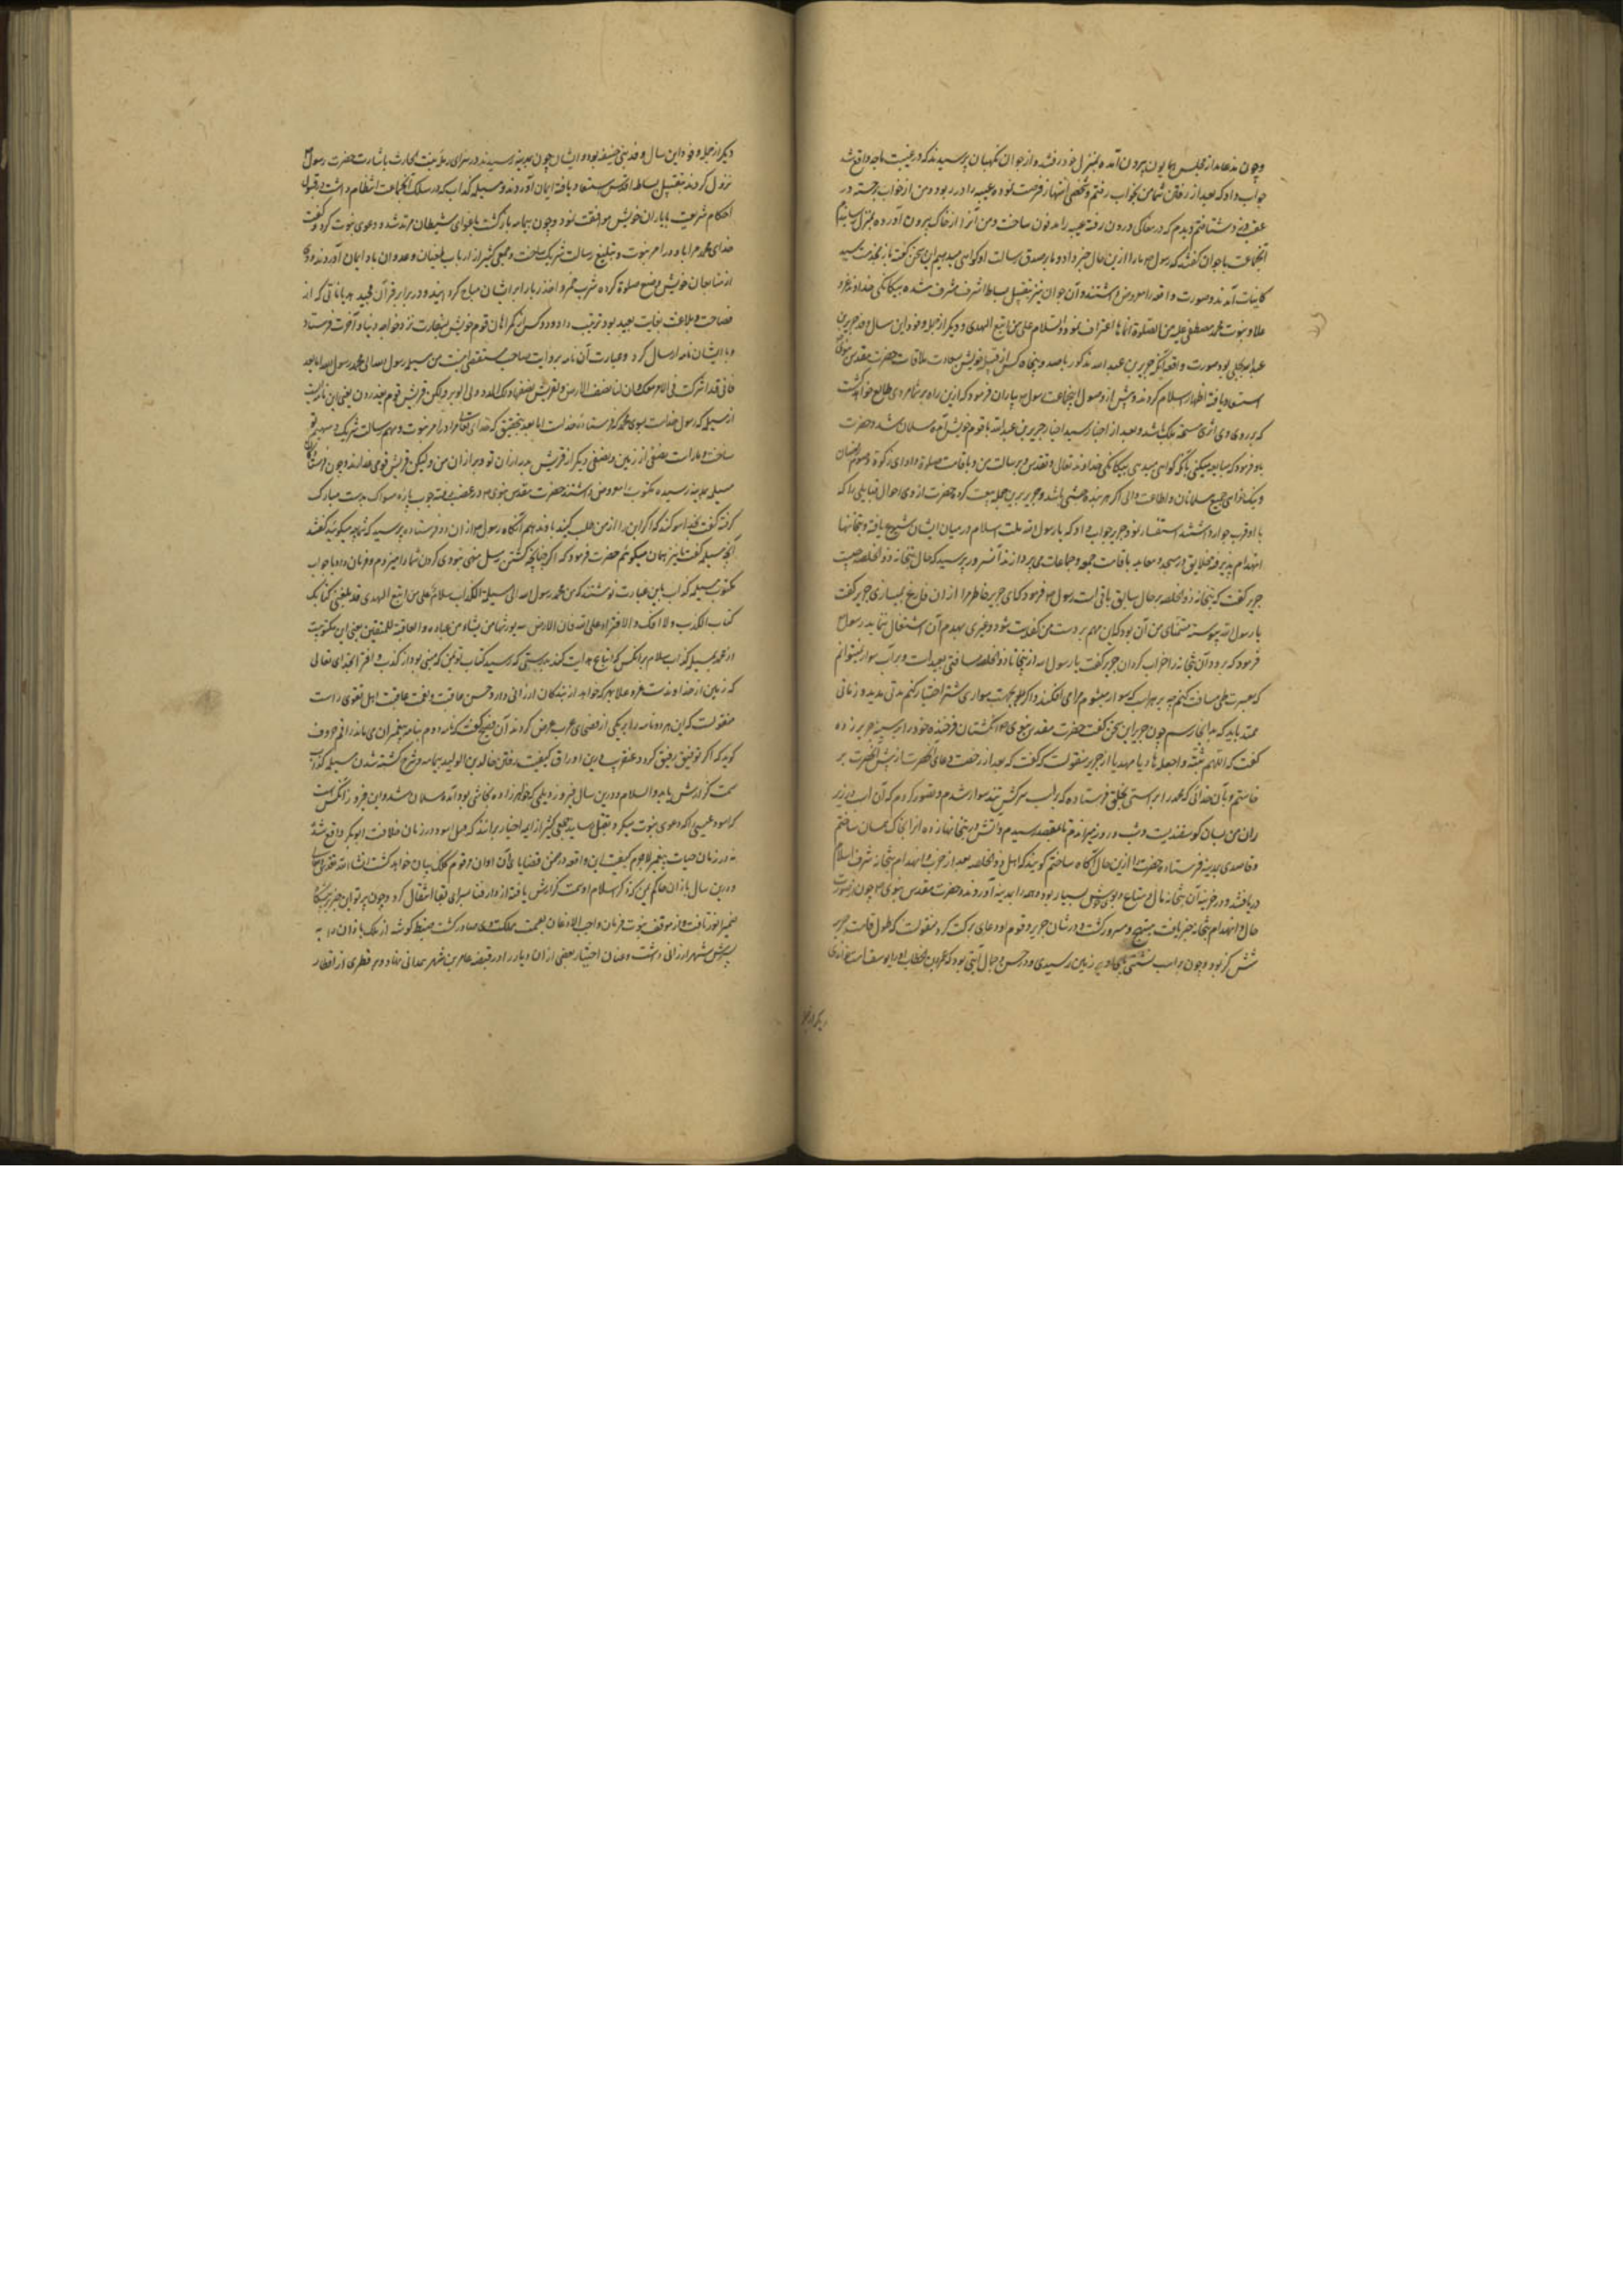 و چون مذعامدار مجلس همایون بیرون آمده بمنزل خود رفتند و از جوان نکهبان پرسیدند که در غیبت ما چه واقع شد
جواب داد که بعد از رفتن شما من بخواب رفتم و شخصی انتهاز فرصت نموده عیبه را در ربود و من از خواب جسته در
عقب وی شتافتم دیدم که در مغاکی درون رفته عیبه را مدفون ساخت و من آنرا از خاک بیرون آورده بمنزل رسانیدم
انجماعت با جوان گفتند که رسول ما را ازین حال خبر داد و ما بر صدق رسالت او کواهی میدهیم این سخن گفته باز بخدمت سید
کاینات آمدند و صورت واقعه را معروض داشتند و آن جوان نیز بتقبیل بساط اشرف مشرف شده بیکانکی خداوند عز و
علا و نبوت محمد مصطفی علیه من الصلوة انماها اعتراف نمود والسلام علی من اتبع الهدی و دیکر از جمله وفود این سال وفد جریر بن
عبد الله بجلی بود صورت واقعه آنکه جریر بن عبد الله مذکور با صد و پنجاه کس از قبیله خویش بسعادت ملاقات حضرت مقدس نبوی
استسعاد یافته اظهار اسلام کردند و پیش از وصول انجماعت رسول یاران فرمود که ازین راه بر شما مردی طالع خواهد کشت
که بر روی وی اثری مسحه ملک باشد و بعد از اخبار رسید اخیار جریر بن عبد الله با قوم خویش آمده مسلمان شد و حضرت
با او فرمود که مبایعه میکنی بانکه کواهی میدهی بیکانکی خداوند تعالی و تقدس و برسالت من و باقامت صلوة و ادای زکوة و صوم رمضان
و نیک خواهی جمیع مسلمانان و اطاعت والی اکر چه بنده حبشی باشد و جریر برین جمله بیعت کرد حضرت از وی احوال قبایلی را که
با او قرب جوار داشتند استفسار نمود جریر جواب داد که یا رسول الله ملت اسلام در میان ایشان شیوع یافته و بتخانها
انهدام پذیرفته خلایق در مسجد و معابد باقامت جمعه و جماعات می پردازند آنسرور پرسید که حال بتخانه ذو الخلصه چیست
جریر گفت که بتخانه ذو الخلصه بر حال سابق باقی است رسول فرمود که ای جریر خاطر مرا از ان فارغ نمیسازی جریر گفت
یا رسول الله پیوسته متمنای من آن بود که این مهم بر دست من کفایت شود و غیری بهدم آن اشتغال ننماید رسول
فرمود که برو و آن بتخانه را خراب کردان جریر گفت یا رسول الله از اینجا تا ذو الخلصه مسافتی بعید است و بر اسب سوار نمیتوانم
که بسرعت طی مسافت کنم چه بر هر اسب که سوار میشوم مرا می افکند و اکر بجهت سواری شتر اختیار کنم مدتی مدید و زمانی
ممتد باید که بدانجا رسم چون جریر این سخن گفت حضرت مقدس نبوی انکشتان فرخنده خود را بر سینه جریر زده
گفت که اللهم ثبته واجعله هادیا مهدیا از جریر منقولست که گفت که بعد از رخصت و دعای آنحضرت از پیش آنحضرت بر
خاستم و بآن خدائی که محمد را براستی بخلق فرستاده که بر اسب سرکش تند سوار شدم و تصور کردم که آن اسب در زیر
ران من بسان کوسفندیست و شب و روز میراندم تا بمقصد رسیدم و آتش در بتخانها زده انرا بخاک یکسان ساختم
و قاصدی بمدینه فرستاده حضرت را ازین حال آگاه ساختم کویند که اهل ذو الخلصه بعد از حرب و انهدام بتخانه شرف اسلام
دریافتند و در خزینه آن بتخانه مال و متاع و بوی خوش بسیار بود و همه را بمدینه آوردند و حضرت مقدس نبوی چون از صورت
حال و انهدام بتخانه خبر یافت مبتهج و مسرور کشت و در شان جریر و قوم او دعای برکت کرد منقولست که طول قامت جریر
شش کز بود و چون بر اسب نشستی پای وی بر زمین رسیدی و در حسن و جمال آیتی بود که عمر بن الخطاب او را یوسف امت خواندی
دیکر از جمله
دیکر از جمله وفود این سال وفد بنی حنیفه بود و ایشان چون بمدینه رسیدند در سرای رمله بنت الحارث باشارت حضرت رسول
نزول کردند و بتقبیل بساط اقدس استسعاد یافته ایمان آوردند و مسیلمه کذاب که در سلک انجماعت انتظام داشت در قبول
احکام شریعت با یاران خویش موافقت نمود و چون بیمامه بازکشت باغوای شیطان مرتد شد و دعوی نبوت کرد و گفت
خدای محمد مرا با او در امر نبوت و تبلیغ رسالت شریک ساخت و جمعی کثیر از ارباب طغیان و عدوان باو ایمان آوردند و وی
از متابعان خویش وضع صلوة کرده شرب خمر و اخذ ربا را بر ایشان مباح کردانید و در برابر قرآن مجید هذیاناتی که از
فصاحت و بلاغت بغایت بعید بود ترتیب داد و دو کس از کمراهان قوم خویش بسفارت نزد خواجه دنیا و آخرت فرستاد
و با ایشان نامه ارسال کرد و عبارت آن نامه بروایت صاحب مستقصی اینست من مسیلمه رسول الله الی محمد رسول الله اما بعد
فانی قد اشرکت فی الامر معک وان لنا نصف الارض ولقریش نصفها ولکن قریش قوم یعتدون یعنی این نامه ایست
از مسیلمه که رسول خداست بسوی محمد که فرستاده خداست اما بعد بتحقیق که خدای تعالی مرا در امر نبوت و مهم رسالت شریک و سهیم تو
ساخت و ما راست نصفی از زمین و نصفی دیکر از قریش ولیکن قریش قومی غدارند و چون فرستادکان
مسیلمه بمدینه رسیده مکتوب را معروض داشتند حضرت مقدس نبوی در غضب رفته چوب پاره مسواک بدست مبارک
کرفته گفت بخدا سوکند که اکر این را از من طلب کنید باو ندهم آنکاه رسول از ان دو فرستاده پرسید که شما چه میکوئید گفتند
آنچه مسیلمه گفت ما نیز همان میکوئیم حضرت فرمود که اکر چنانچه کشتن رسل منهی نبودی کردن شما را میزدم و فرمان داد تا جواب
مکتوب مسیلمه کذاب باین عبارت نوشتند که من محمد رسول الله الی مسیلمة الکذاب سلام علی من اتبع الهدی قد بلغنی کتابک
کتاب الکذب والافک والافتراء علی الله فان الارض لله یورثها من یشاء من عباده والعاقبة للمتقین یعنی این مکتوبیست
از محمد بمسیلمه کذاب سلام بر آنکس که اتباع هدایت کند بدرستی که رسید کتاب تو بمن که مبنی بود از کذب و افترا بخدای تعالی
که زمین از خداوندست عز و علا بهر که خواهد از بندکان ارزانی دارد و حسن عاقبت اهل تقوی راست
منقولست که این هر دو نامه را بر یکی از فصحای عرب عرض کردند آن فصیح گفت که نامه دوم بنامه پیغمبران می ماند راقم حروف
کوید که اکر توفیق رفیق کردد عنقریب درین اوراق کیفیت رفتن خالد بن الولید بیمامه و شرح کشته شدن مسیلمه کذاب
سمت کزارش یابد والسلام و درین سال فیروز دیلمی که خواهرزاده نجاشی بود آمده مسلمان شد و این فیروز آنکس است
که اسود عنسی را که دعوی نبوت میکرد بقتل رسانید جمعی کثیر از ایمه اخبار برانند که قتل اسود در زمان خلافت ابو بکر واقع شد
نه در زمان حیات پیغمبر لاجرم کیفیت این واقعه در ضمن قضایای آن اوان مرقوم کلک بیان خواهد کشت انشاء الله تعالی
و درین سال باذان حاکم یمن که ذکر اسلام او سمت کزارش یافته از دار فنا بسرای بقا انتقال کرد و چون پرتو این خبر بر پیشکاه
ضمیر انور تافت از موقف نبوت فرمان واجب الاذعان بقسمت مملکت وی صادر کشت ضبط کوشه از ملک باذان را به
پسرش شهر ارزانی داشت و عنان اختیار بعضی از ان دیار را در قبضه عامر بن شهر همدانی نهاد و هر قطری از اقطار